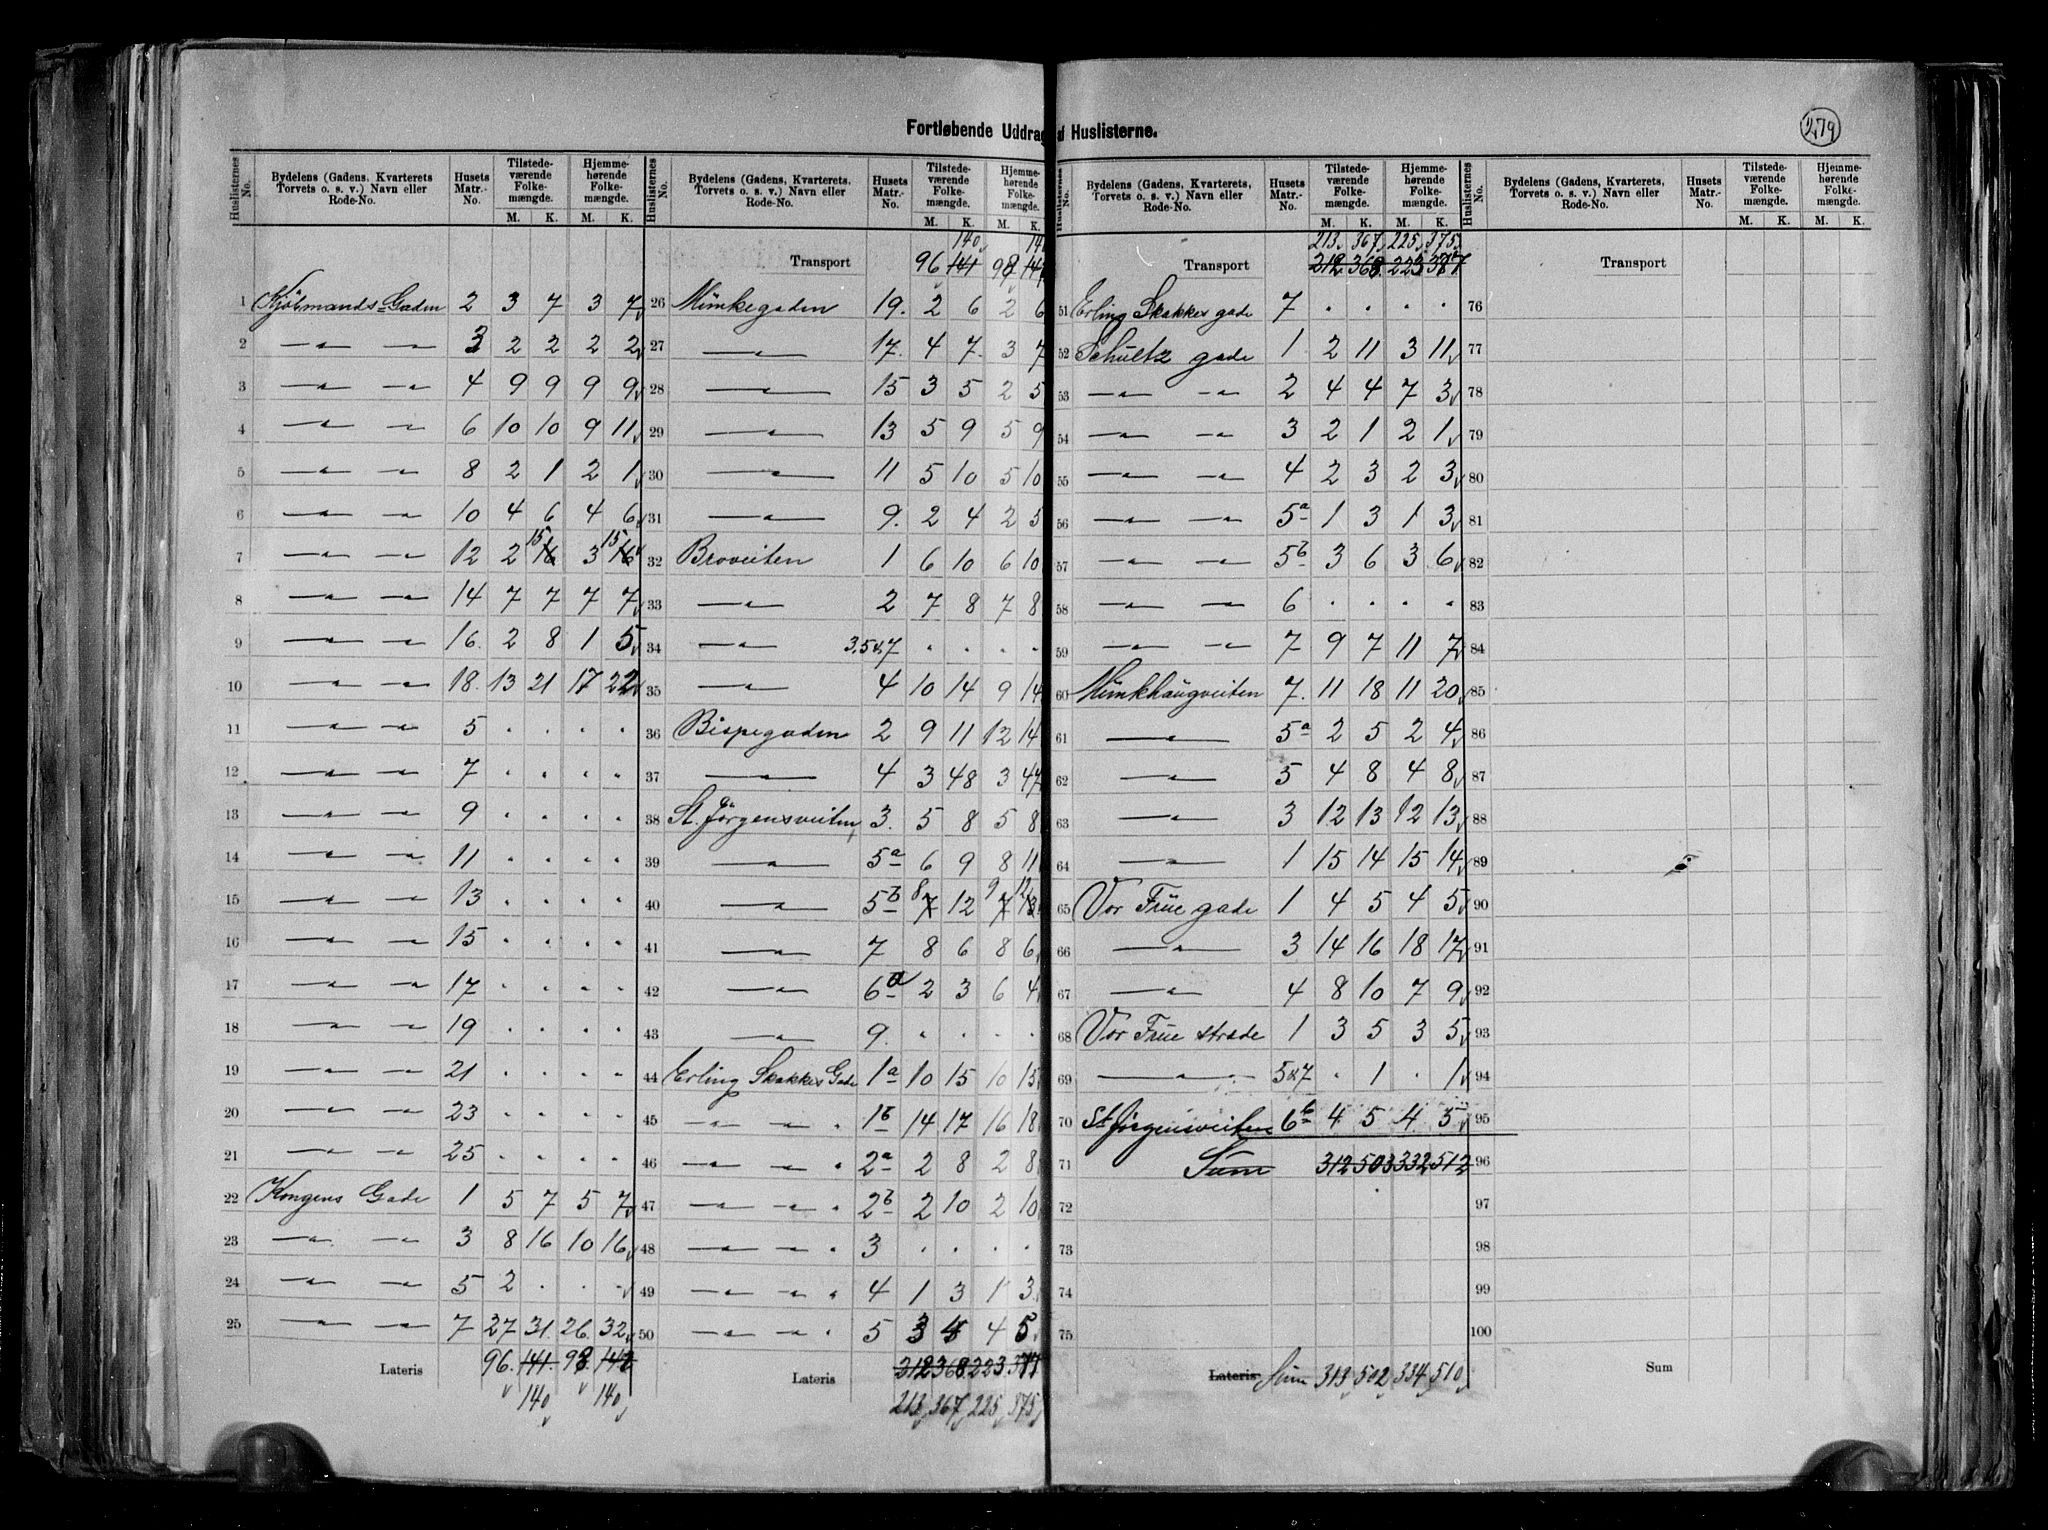 279
Fortløbende Uddrag af Huslisterne.
Huslisternes No. | Bydelens (Gadens, Kvarterets, Torvets o. s. v.) Navn eller Rode-No. | Husets Matr.-No. | Tilstedeværende Folkemængde. M. K. | Hjemmehørende Folkemængde. M. K.
1 Kjöbmands Gaden 2 3 7 3 7
2 —"— —"— 3 2 2 2 2
3 —"— —"— 4 9 9 9 9
4 —"— —"— 6 10 10 9 11
5 —"— —"— 8 2 1 2 1
6 —"— —"— 10 4 6 4 6
7 —"— —"— 12 2 15 16 3 15 16
8 —"— —"— 14 7 7 7 7
9 —"— —"— 16. 2 8 1 5
10 —"— —"— 18. 13 21 17 22
11 —"— —"— 5 . . . .
12 —"— —"— 7 . . . .
13 —"— —"— 9 . . . .
14 —"— —"— 11 . . . .
15 —"— —"— 13 . . . .
16 —"— —"— 15 . . . .
17 —"— —"— 17 . . . .
18 —"— —"— 19 . . . .
19 —"— —"— 21 . . . .
20 —"— —"— 23 . . . .
21 —"— —"— 25 . . . .
22 Kongens Gade 1 5 7 5 7
23 —"— —"— 3 8 16 10 16
24 —"— —"— 5 2 . . .
25 —"— —"— 7 27 31. 26. 32
Lateris 96. 141. 98 142
140 140
Huslisternes No. | Bydelens (Gadens, Kvarterets, Torvets o. s. v.) Navn eller Rode-No. | Husets Matr.-No. | Tilstedeværende Folkemængde. M. K. | Hjemmehørende Folkemængde. M. K.
140 140
Transport 96 141 98
26 Munkegaden 19. 2 6 2 6
27 —"— 17. 4 7. 3 7
28 —"— 15 3 5 2 5
29 —"— 13 5 9 5 9
30 —"— 11 5 10 5 10
31 —"— 9. 2 4 2 5
32 Broveiten 1 6 10 6 10
33 —"— 2 7 8 7 8
34 —"— 3,5&7 . . . .
35 —"— 4 10 14 9 14
36 Bispegaden 2 9 11 12 14
37 —"— 4 3 48 3 47
38 St. Jørgensveiten 3. 5 8 5 8
39 —"— 5a 6 9 8 11
40 —"— 5b 8 7 12 9 7 12 13
41 —"— 7 8 6 8 6
42 —"— 6a 2 3 6 4
43 —"— 9. . . . .
44 Erling Skakkes Gade 1a 10 15 10 15
45 —"— —"— 1b 14 17 16 18
46 —"— —"— 2a 2 8 2 8
47 —"— —"— 2b 2 10 2 10
48 —"— —"— 3 . . . .
49 —"— —"— 4 1 3 1 3
50 —"— —"— 5 3 4 5
Lateris 212 368 223. 377
213 367 225 375
Huslisternes No. | Bydelens (Gadens, Kvarterets, Torvets o. s. v.) Navn eller Rode-No. | Husets Matr.-No. | Tilstedeværende Folkemængde. M. K. | Hjemmehørende Folkemængde. M. K.
213 367 225 375
Transport 212 368 223 377
51 Erling Skakkes gade 7 . . . .
52 Schultz gade 1 2 11 3 11
53 —"— —"— 2 4 4 7 3
54 —"— —"— 3 2 1 2 1
55 —"— —"— 4 2 3 2 3
56 —"— —"— 5a 1 3 1 3
57 —"— —"— 5b 3 6 3 6
58 —"— —"— 6 . . . .
59 —"— —"— 7 9 7 11 7
60 Munkhaugveiten 7. 11 18 11 20
61 —"— 5a 2 5 2 4
62 —"— 5 4 8 4 8
63 —"— 3 12 13 12 13
64 —"— 1 15 14 15 14
65 Vor Frue gade 1 4 5 4 5
66 —"— 3 14 16 18 17
67 —"— 4 8 10 7 9
68 Vor Frue stræde 1 3 5 3 5
69 —"— 5&7 . 1 . 1
70 St. Jørgensveiten 6b 4 5 4 5
71 Sum 312 503 332 512
72
73
74
75
Lateris Sum 313 502 334 510
Huslisternes No. | Bydelens (Gadens, Kvarterets, Torvets o. s. v.) Navn eller Rode-No. | Husets Matr.-No. | Tilstedeværende Folkemængde. M. K. | Hjemmehørende Folkemængde. M. K.
Transport
76
77
78
79
80
81
82
83
84
85
86
87
88
89
90
91
92
93
94
95
96
97
98
99
100
Sum